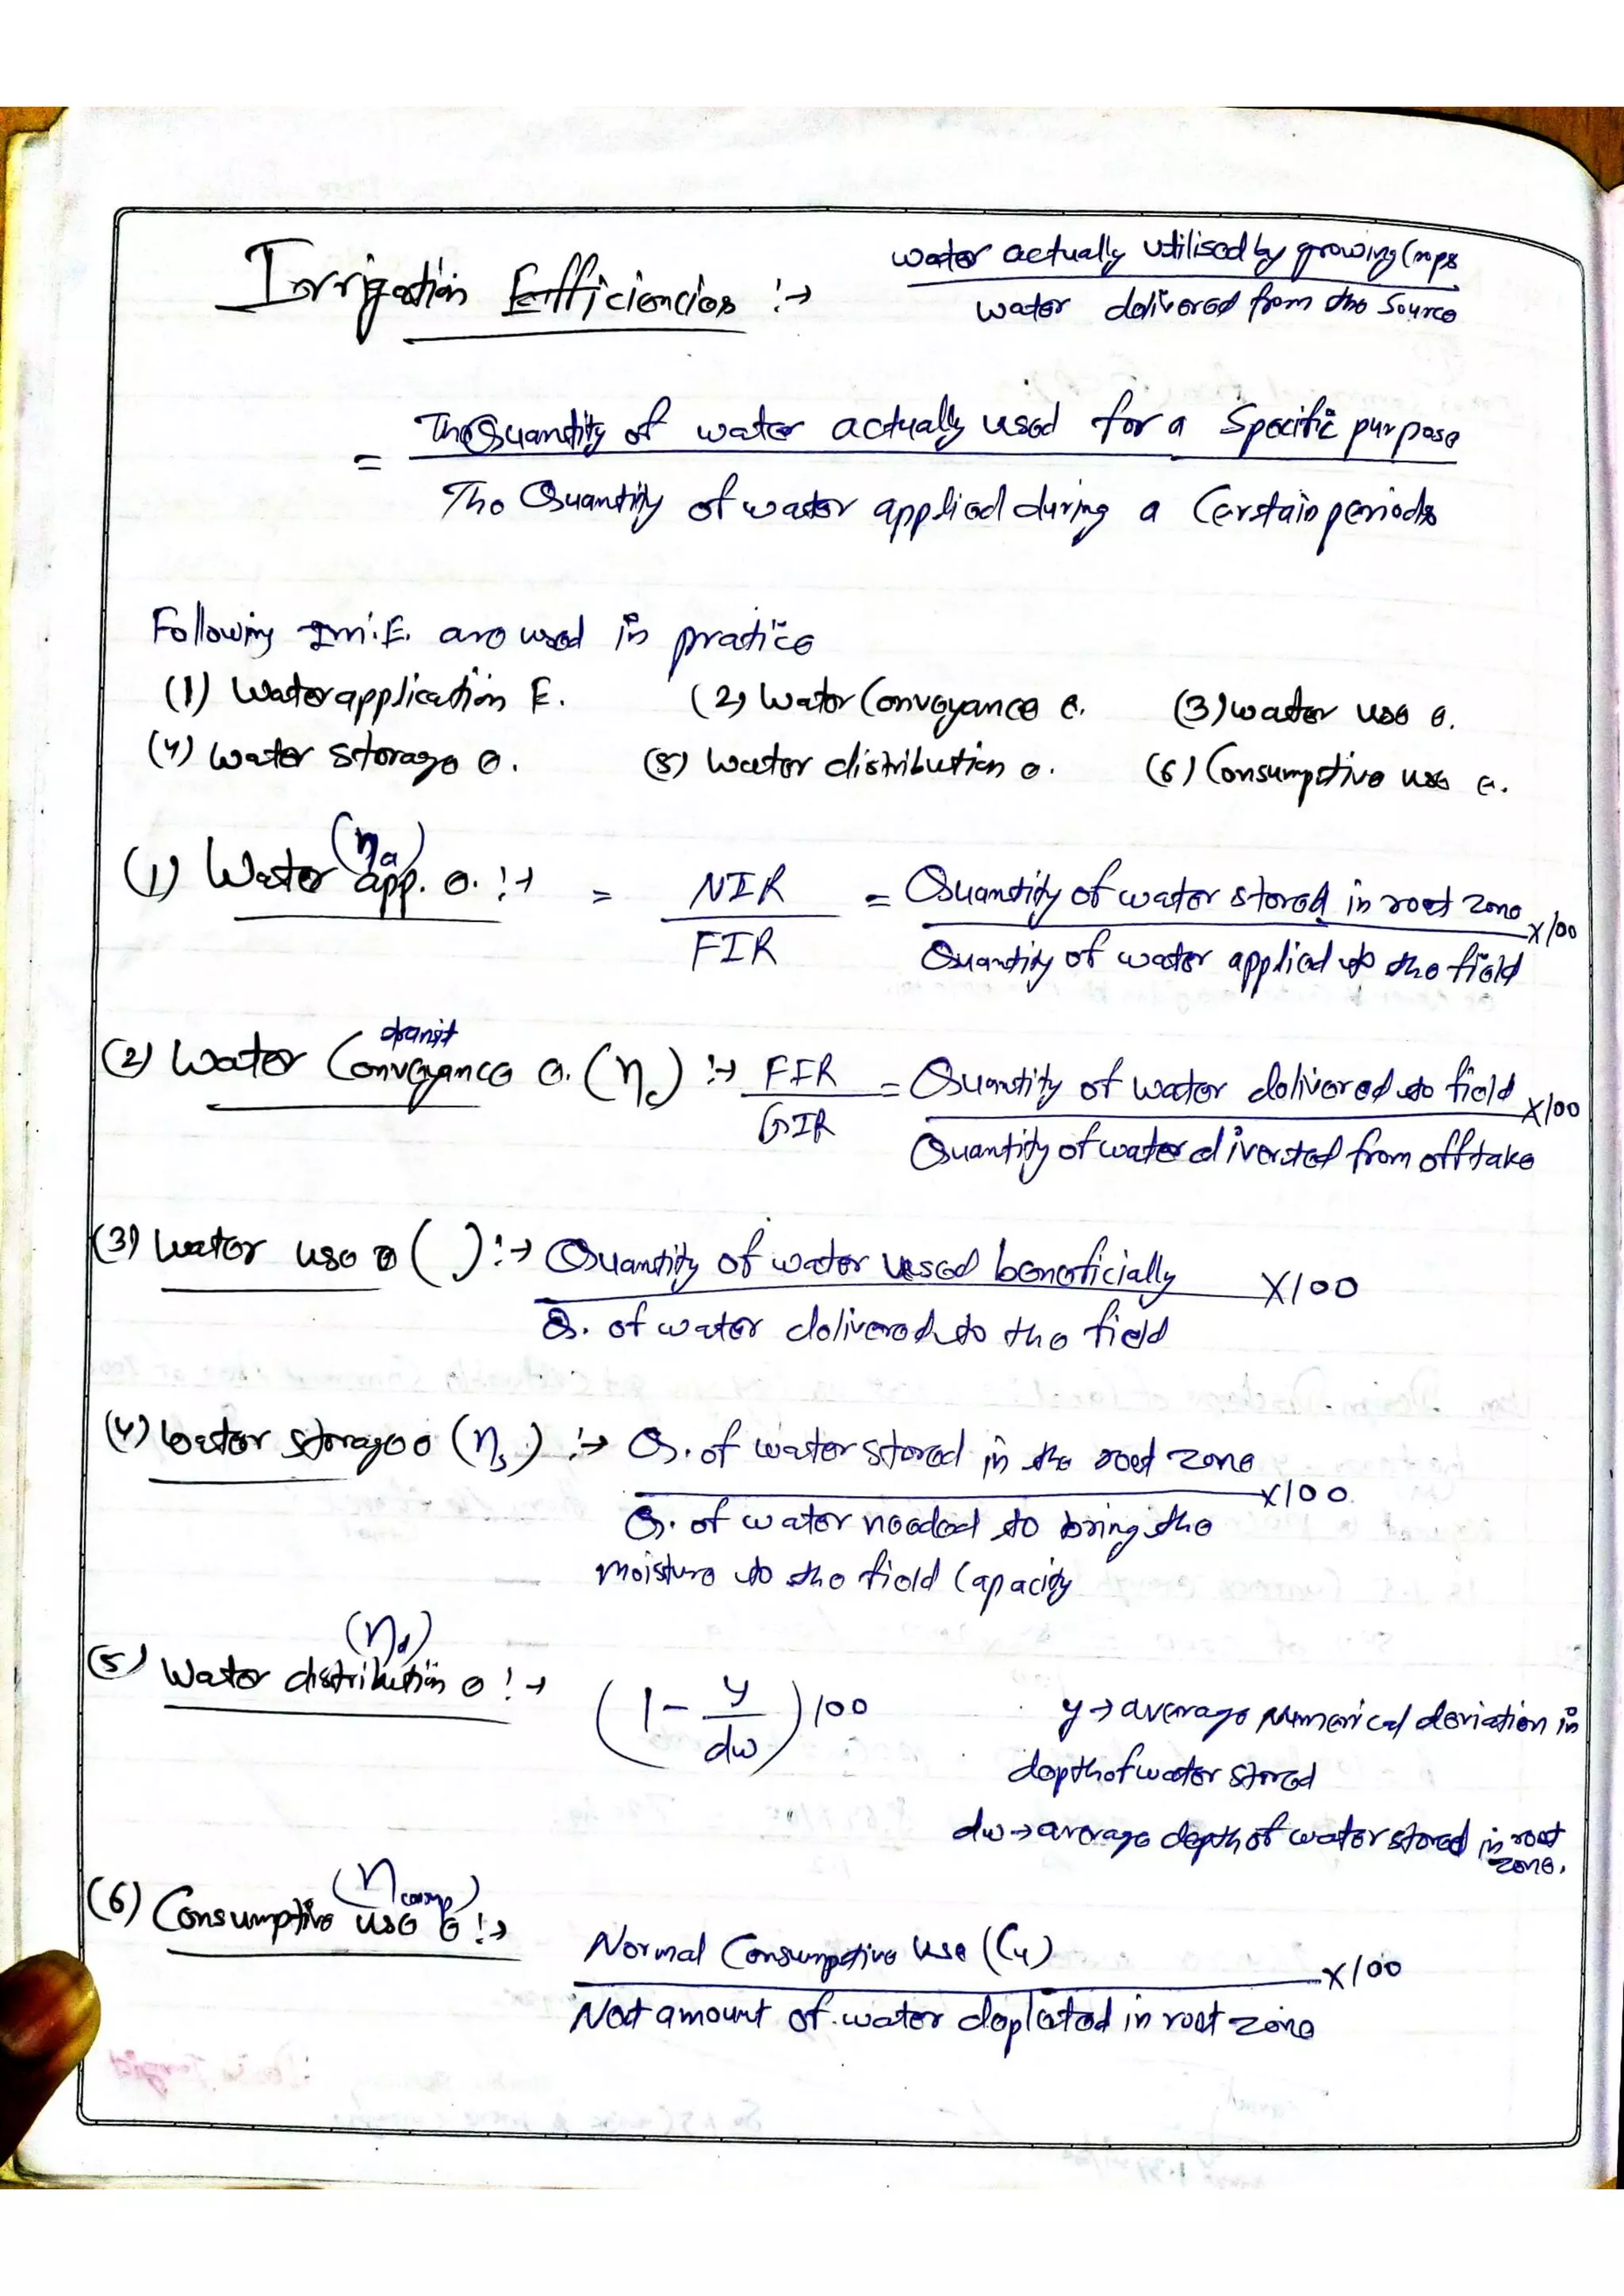 Irrigation Efficiencies :→ water actually utilised by growing Crops / water delivered from the Source
= The Quantity of water actually used for a Specific purpose / The Quantity of water applied during a Certain periods
Following Irri. E. are used in pratice
(1) Water application E. (2) Water Conveyance e. (3) water use e.
(4) Water Storage e. (5) Water distribution e. (6) Consumptive use e.
(1) Water app. e. (ηa) :→ = NIR / FIR = Quantity of water stored in root zone / Quantity of water applied to the field X100
(2) Water Conveyance e. (ηc) :→ FIR / GIR = Quantity of water delivered to field / Quantity of water diverted from offtake X100
transit
(3) Water use e ( ) :→ Quantity of water used beneficially / Q. of water delivered to the field X100
(4) Water storage e (ηs) :→ Q. of water stored in the root zone / Q. of water needed to bring the X100
moisture to the field Capacity
(5) Water distribution e (ηd) :→ (1 - y/dw) 100 y → average numerical deviation in
depth of water stored
dw → average depth of water stored in root
zone.
(6) Consumptive use e (ηconsp) :→ Normal Consumptive Use (Cu) / Net amount of water depleted in root zone X100